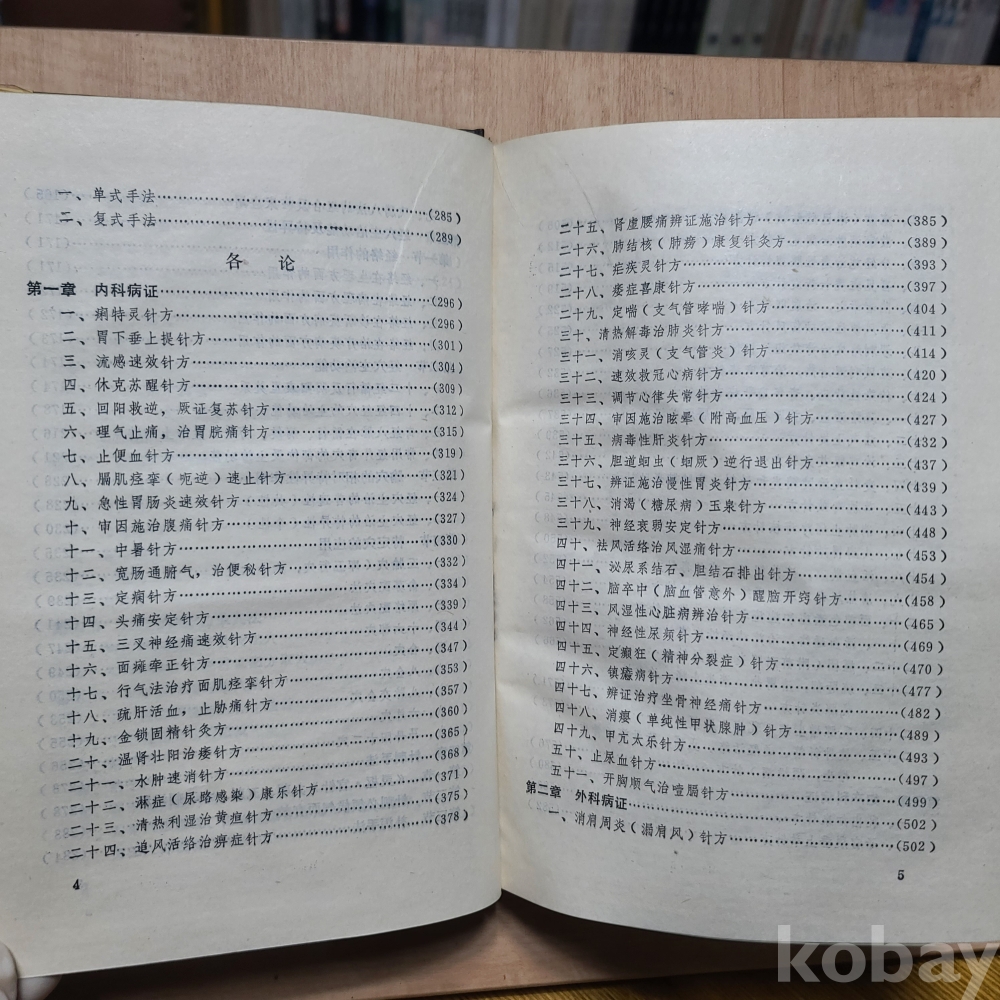 一、单式手法……(285)
二、复式手法……(289)
各 论
第一章 内科病证……(296)
一、痢特灵针方……(296)
二、胃下垂上提针方……(301)
三、流感速效针方……(304)
四、休克苏醒针方……(309)
五、回阳救逆，厥证复苏针方……(312)
六、理气止痛，治胃脘痛针方……(315)
七、止便血针方……(319)
八、膈肌痉挛（呃逆）速止针方……(321)
九、急性胃肠炎速效针方……(324)
十、审因施治腹痛针方……(327)
十一、中暑针方……(330)
十二、宽肠通腑气，治便秘针方……(332)
十三、定痫针方……(334)
十四、头痛安定针方……(339)
十五、三叉神经痛速效针方……(344)
十六、面瘫牵正针方……(347)
十七、行气法治疗面肌痉挛针方……(353)
十八、疏肝活血，止胁痛针方……(357)
十九、金锁固精针灸方……(360)
二十、温肾壮阳治痿针方……(365)
二十一、水肿速消针方……(368)
二十二、淋症（尿路感染）康乐针方……(371)
二十三、清热利湿治黄疸针方……(375)
二十四、追风活络治痹症针方……(378)
4
二十五、肾虚腰痛辨证施治针方……(385)
二十六、肺结核（肺痨）康复针灸方……(389)
二十七、疟疾灵针方……(393)
二十八、痿症喜康针方……(397)
二十九、定喘（支气管哮喘）针方……(404)
三十、清热解毒治肺炎针方……(411)
三十一、消咳灵（支气管炎）针方……(414)
三十二、速效救冠心病针方……(420)
三十三、调节心律失常针方……(424)
三十四、审因施治眩晕（附高血压）针方……(427)
三十五、病毒性肝炎针方……(432)
三十六、胆道蛔虫（蛔厥）逆行退出针方……(437)
三十七、辨证施治慢性胃炎针方……(439)
三十八、消渴（糖尿病）玉泉针方……(443)
三十九、神经衰弱安定针方……(448)
四十、祛风活络治风湿痛针方……(453)
四十一、泌尿系结石、胆结石排出针方……(454)
四十二、脑卒中（脑血管意外）醒脑开窍针方……(458)
四十三、风湿性心脏病辨治针方……(465)
四十四、神经性尿频针方……(469)
四十五、定癫狂（精神分裂症）针方……(470)
四十六、镇癔病针方……(477)
四十七、辨证治疗坐骨神经痛针方……(482)
四十八、消瘿（单纯性甲状腺肿）针方……(489)
四十九、甲亢太乐针方……(493)
五十、止尿血针方……(497)
五十一、开胸顺气治噎膈针方……(499)
第二章 外科病证……(502)
一、消肩周炎（漏肩风）针方……(502)
5
kobay